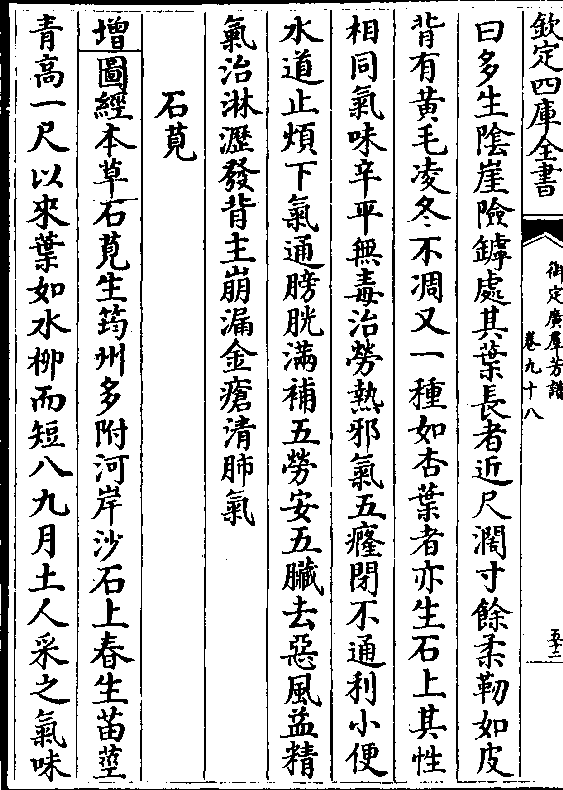 欽定四庫全書
御定廣羣芳譜
卷九十八
五十二
曰多生陰崖險罅處其葉長者近尺濶寸餘柔勒如皮
背有黄毛凌冬不凋又一種如杏葉者亦生石上其性
相同氣味辛平無毒治勞熱邪氣五癃閉不通利小便
水道止煩下氣通膀胱滿補五勞安五臟去惡風益精
氣治淋瀝發背主崩漏金瘡清肺氣
石莧
增圖經本草石莧生筠州多附河岸沙石上春生苗莖
青高一尺以來葉如水栁而短八九月土人采之氣味